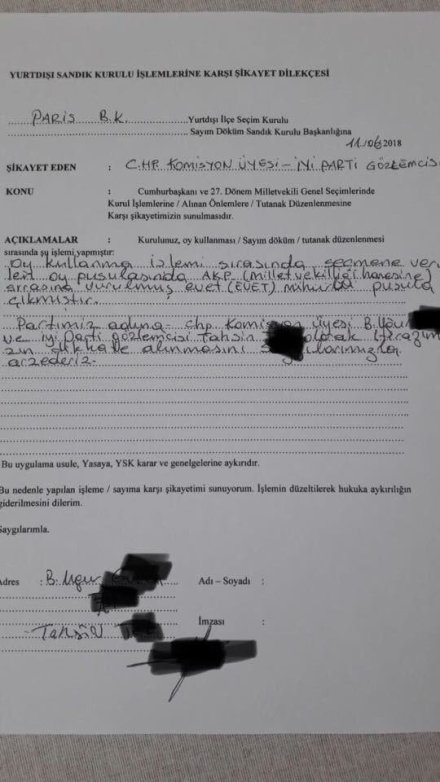 YURTDIŞI SANDIK KURULU İŞLEMLERİNE KARŞI ŞİKAYET DİLEKÇESİ
PARİS B.K. Yurtdışı İlçe Seçim Kurulu
Sayım Döküm Sandık Kurulu Başkanlığına
11/06/2018
ŞİKAYET EDEN : CHP KOMİSYON ÜYESİ - İYİ PARTİ GÖZLEMCİSİ
KONU : Cumhurbaşkanı ve 27. Dönem Milletvekili Genel Seçimlerinde
Kurul İşlemlerine / Alınan Önlemlere / Tutanak Düzenlenmesine
Karşı şikayetimizin sunulmasıdır.
AÇIKLAMALAR : Kurulunuz, oy kullanması / Sayım döküm / tutanak düzenlenmesi
sırasında şu işlemi yapmıştır:
Oy kullanma işlemi sırasında seçmene veri
len oy pusulasında AKP (Milletvekilliği hanesine)
arkasına vurulmuş evet (EVET) mühürlü pusula
çıkmıştır.
Partimiz adına chp Komisyon üyesi B.Uğur
ve iyi Parti gözlemcisi Tahsin olarak itirazımı
zın dikkate alınmasını saygılarımızla
arzederiz.
Bu uygulama usule, Yasaya, YSK karar ve genelgelerine aykırıdır.
Bu nedenle yapılan işleme / sayıma karşı şikayetimi sunuyorum. İşlemin düzeltilerek hukuka aykırılığın
giderilmesini dilerim.
Saygılarımla.
Adres : B.Uğur Adı – Soyadı :
Tahsin İmzası :